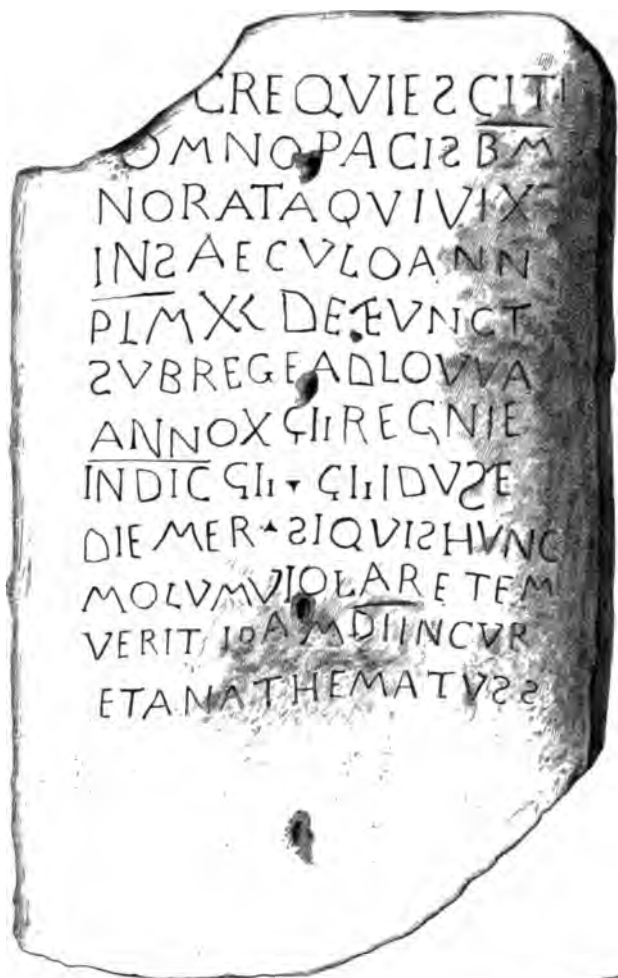 CREQVIESCITI
OMNOPACISBM
NORATAQVIVIX
INSAECVLOANN
PLMXL DEFVNCT
SVBREGEADLOVVA
ANNOXϚIIREGNIE
INDICϚII ▾ ϚIIIDVSE
DIEMER ▴ SIQVISHVNC
MOLVMVIOLARETEM
VERIT IDAMDIINCVR
ETANATHEMATVSS